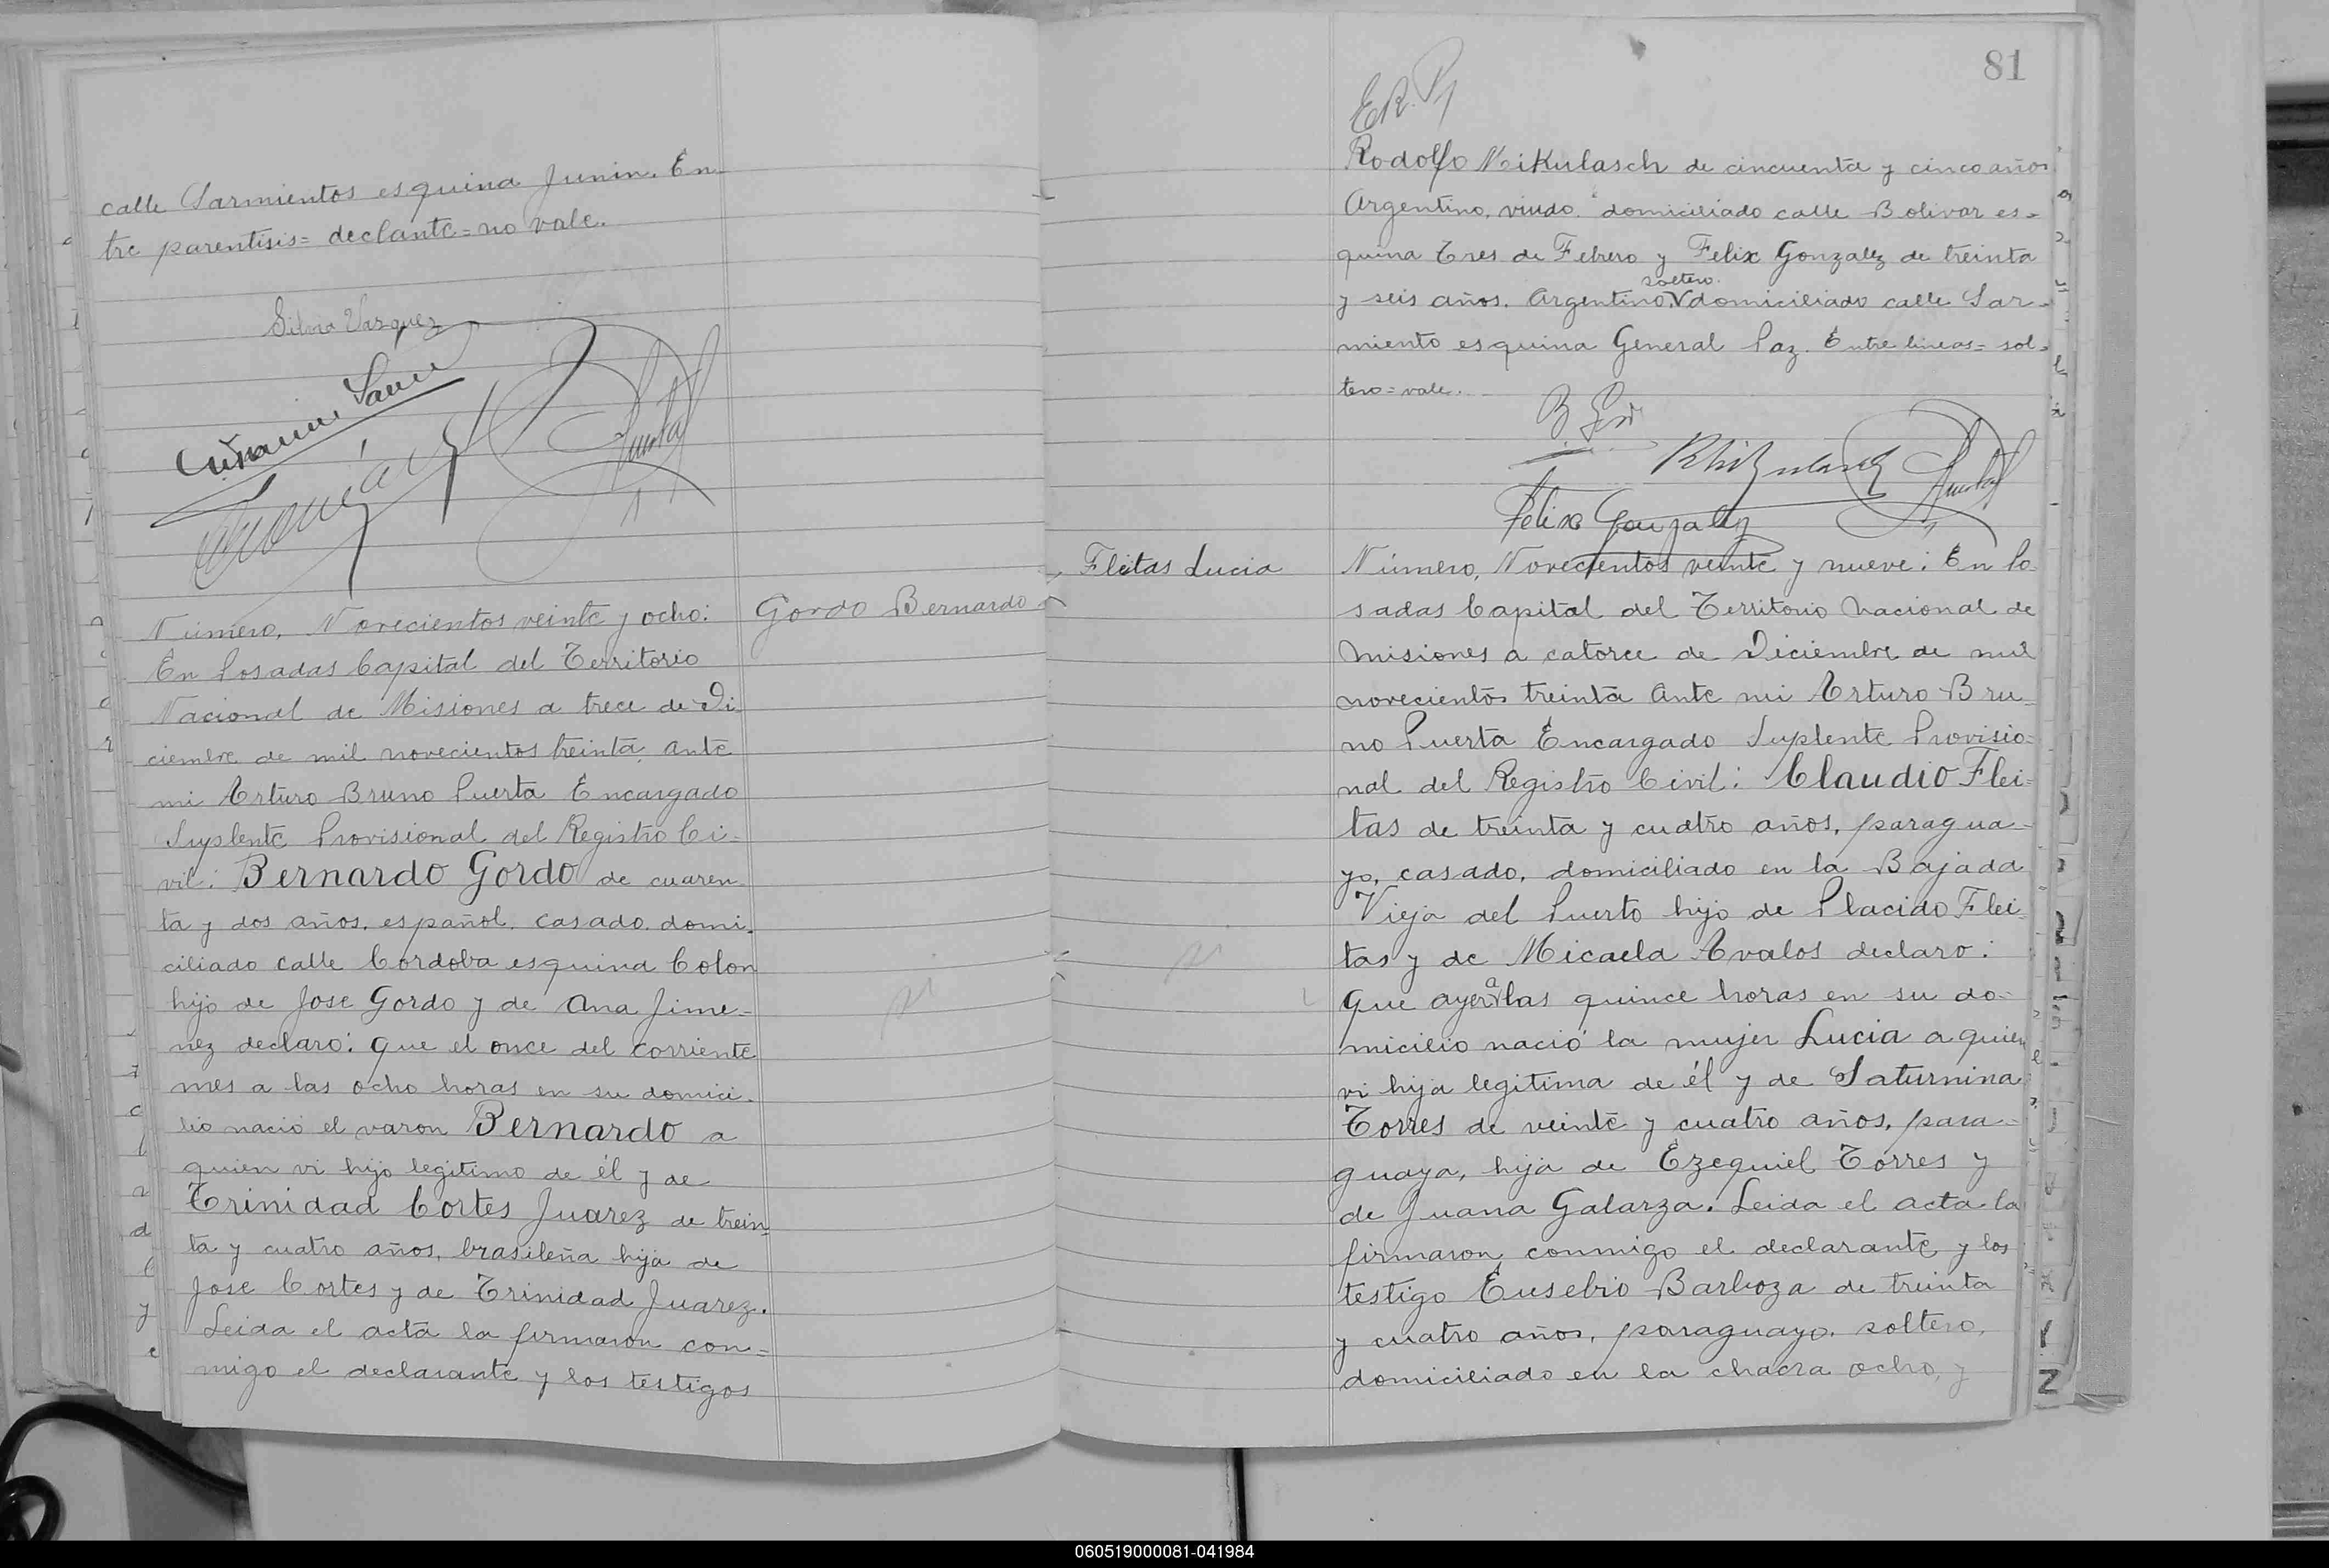 calle Sarmientos esquina Junin. En-
tre parentisis= declante= no vale.
Silvia Vasquez
Número, Novecientos veinte y ocho:
Gordo Bernardo
En Posadas Capital del Territorio
Nacional de Misiones a trece de Di-
ciembre de mil novecientos treinta, ante
mi Arturo Bruno Puerta Encargado
Suplente Provisional del Registro Ci=
vil: Bernardo Gordo de cuaren-
ta y dos años, español, casado, domi-
ciliado calle Cordoba esquina Colon
hijo de Jose Gordo y de Ana Jime-
nez declaro: que el once del corriente
mes a las ocho horas en su domici-
lio nació el varon Bernardo a
quien vi hijo legitimo de él y de
Trinidad Cortes Juarez de trein-
ta y cuatro años, brasileña hija de
Jose Cortes y de Trinidad Juarez.
Leida el acta la firmaron con=
migo el declarante y los testigos
81
Rodolfo Mikulasch de cincuenta y cinco años
Argentino, viudo, domiciliado calle Bolivar es-
quina Tres de Febrero y Felix Gonzalez de treinta
soltero.
y seis años, Argentino, V domiciliado calle Sar-
miento esquina General Paz. Entre lineas= sol-
tero= vale.
Felix Gonzalez
Fleitas Lucia
Número, Novecientos veinte y nueve: En Po-
sadas Capital del Territorio Nacional de
Misiones a catorce de Diciembre de mil
novecientos treinta ante mi Arturo Bru-
no Puerta Encargado Suplente Provisio-
nal del Registro Civil: Claudio Flei-
tas de treinta y cuatro años, paragua-
yo, casado, domiciliado en la Bajada
Vieja del Puerto hijo de Placido Flei-
tas y de Micaela Avalos declaro:
que ayer a las quince horas en su do-
micilio nació la mujer Lucia a quien
vi hija legitima de él y de Saturnina
Torres de veinte y cuatro años, para-
guaya, hija de Ezequiel Torres y
de Juana Galarza. Leida el acta la
firmaron conmigo el declarante y los
testigo Eusebio Barboza de treinta
y cuatro años, paraguayo, soltero,
domiciliado en la chacra ocho, y
060519000081-041984